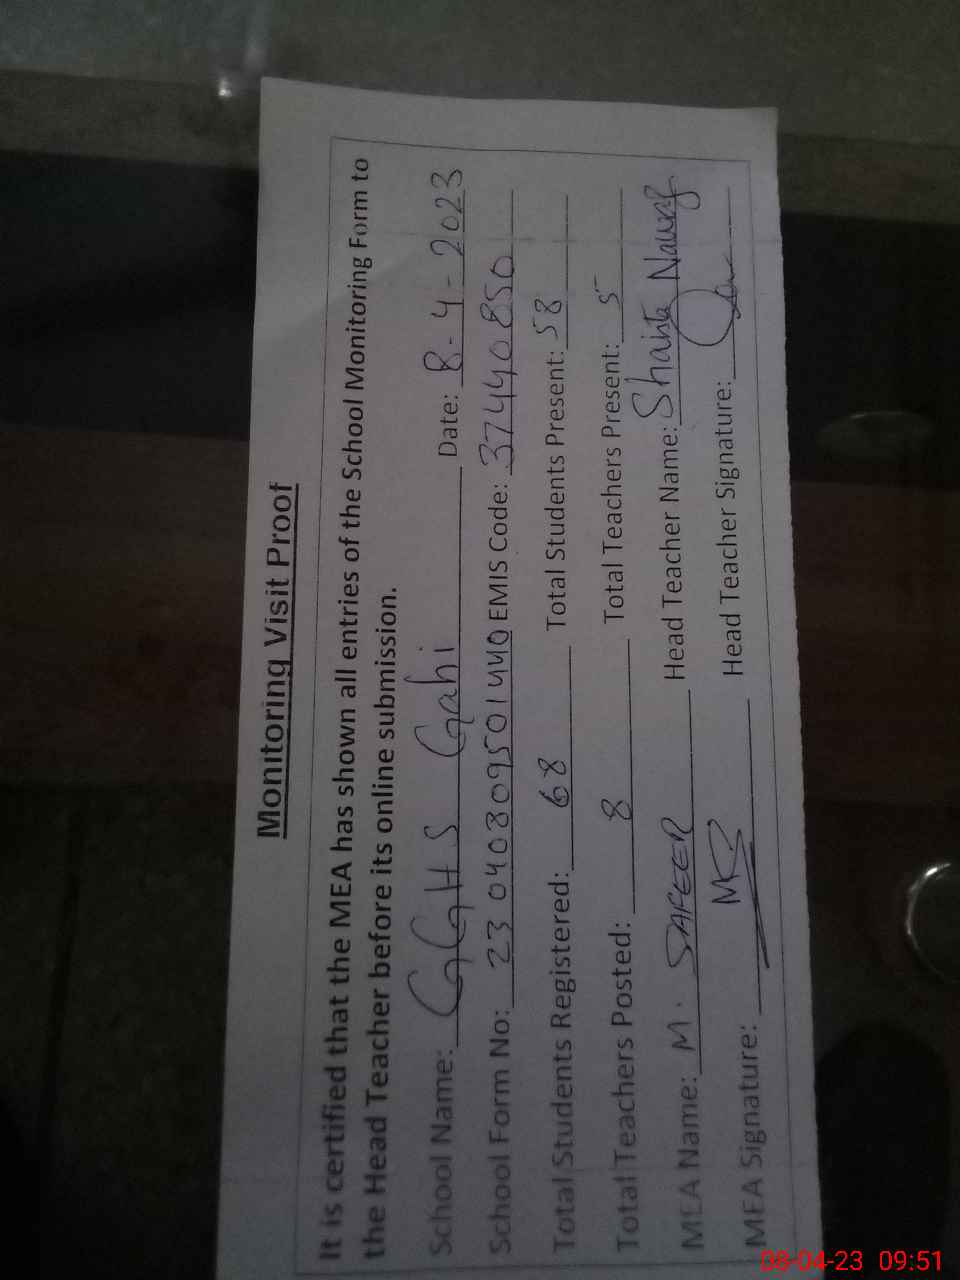 Monitoring Visit Proof
It is certified that the MEA has shown all entries of the School Monitoring Form to
the Head Teacher before its online submission.
School Name: GGHS Gahi Date: 8-4-2023
School Form No: 23040809501440 EMIS Code: 37440850
Total Students Registered: 68 Total Students Present: 58
Total Teachers Posted: 8 Total Teachers Present: 5
MEA Name: M. SAFEER Head Teacher Name: Nawaz
MEA Signature: Head Teacher Signature:
08-04-23 09:51